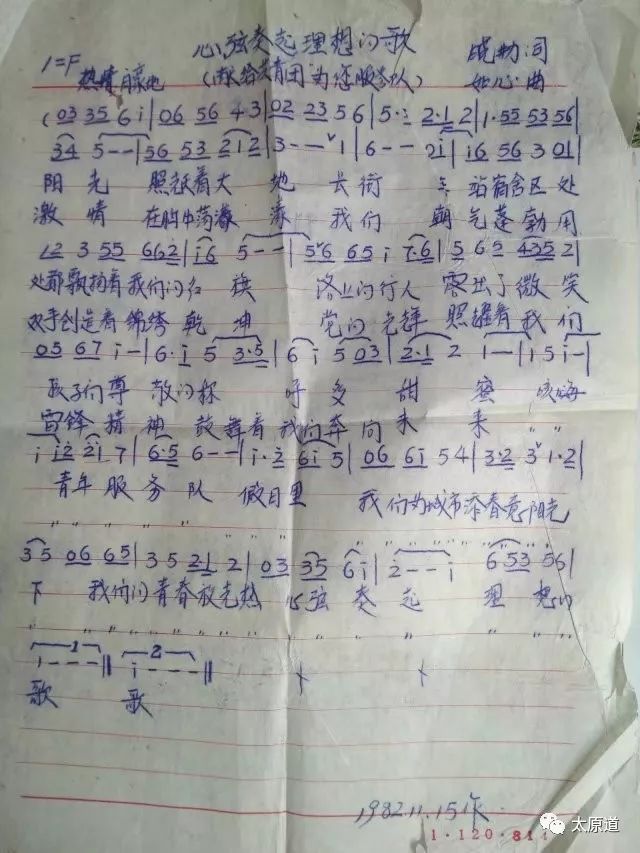 心弦奏起理想的歌
1=F 热情 豪地 (献给共青团为您服务队) 晓勤词 如心曲
(03 35 6 i | 06 56 4 3 | 02 23 5 6 | 5·: 2·1 2 | 1·55 53 56 |
34 5 - - | 56 53 212 | 3 - - ˅1 | 6 - - 2i | i6 56 3 01 |
阳光 照耀着大 地 长街 车站宿舍区处
激情 在胸中荡漾 漾 我们 朝气蓬勃用
12 3 55 662 | i6 5 - - | 5˅6 65 i 7·6 | 5 6 5 435 2 |
处都飘扬着我们的红 旗 路上的行人 露出了微笑
双手创造着锦绣乾 坤 党的光辉 照耀着我们
05 67 i - | 6·i 5 3·5 | 6 i 5 03 | 2·1 2 1 - | 1 5 i - |
孩子们尊 敬的称 呼多甜 蜜 咳嗨
雷锋精 神鼓舞着我们奔向未 来 " "
i i2 2i 7 | 6·5 6 - - | i·2 6i 5 | 06 6i 5 4 | 3·2 3˅1·2 |
青年服务队 假日里 我们为城市添春意阳光
35 06 65 | 3 5 21 2 | 03 35 6i | 2 - - i 6·53 56 |
下 我们的青春放光热 心弦奏起 理想的
1 i - - - || 2 i - - - ||
歌 歌
1982.11.15作
1·120·814
太原道